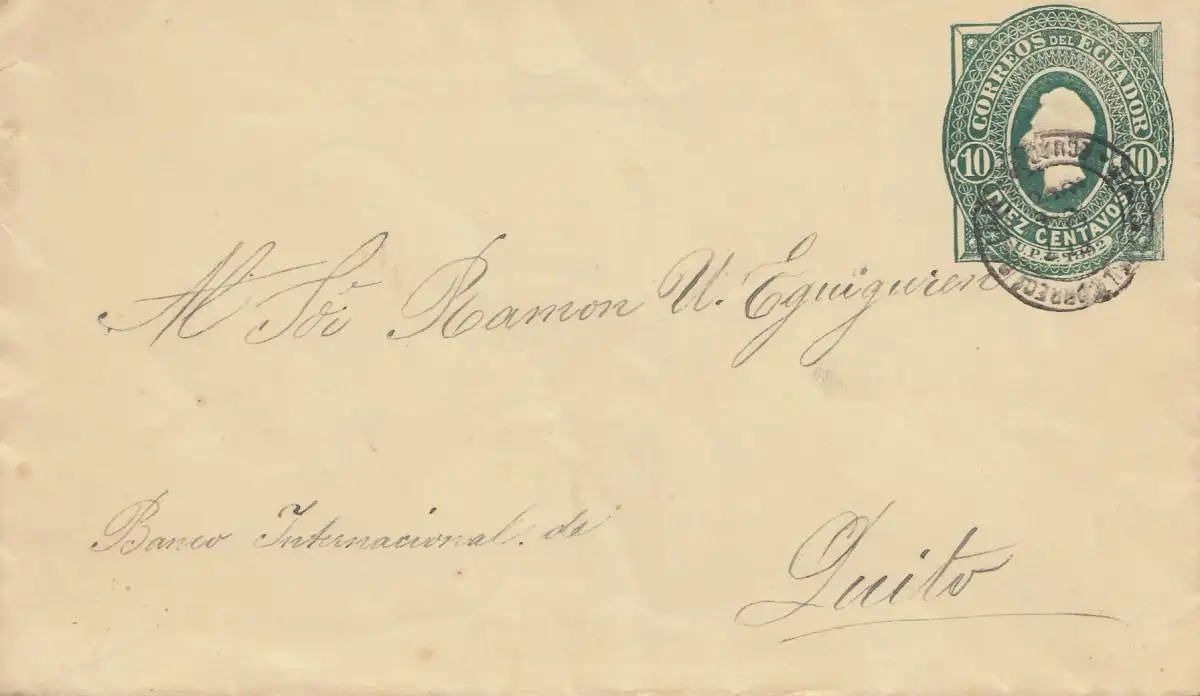 CORREOS DEL ECUADOR
10 10
DIEZ CENTAVOS
U.P. 1892
M. Sór Ramon U. Eguiguren
Banco Internacional. de
Quito